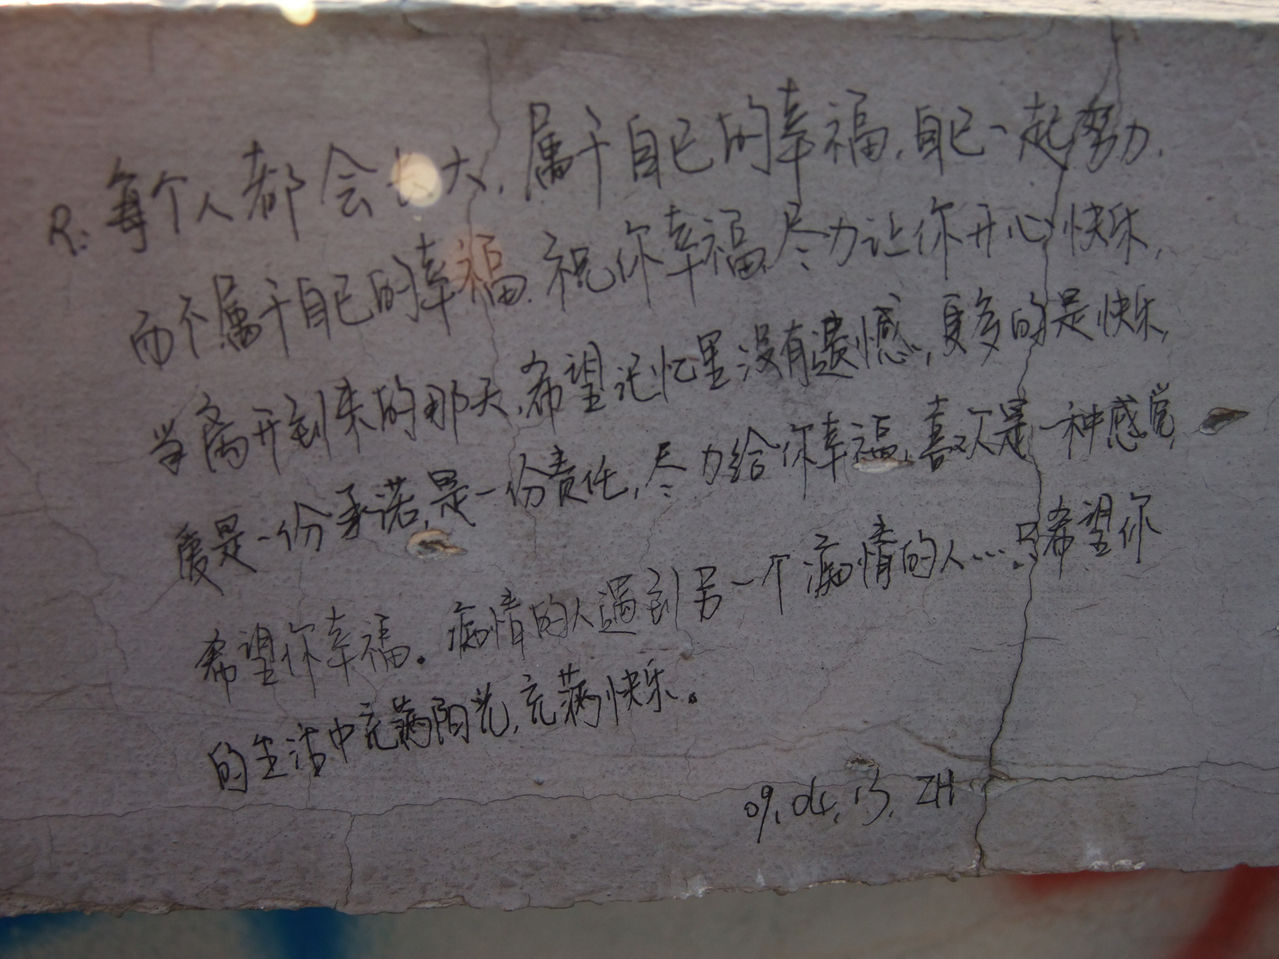 R: 每个人都会长大,属于自己的幸福,自己一起努力,
而不属于自己的幸福,祝你幸福,尽力让你开心快乐,
当离开到来的那天,希望记忆里没有遗憾,更多的是快乐,
爱是一份承诺,是一份责任,尽力给你幸福,喜欢是一种感觉
希望你幸福。痴情的人遇到另一个痴情的人...只希望你
的生活中充满阳光,充满快乐。
09.04.13. ZH